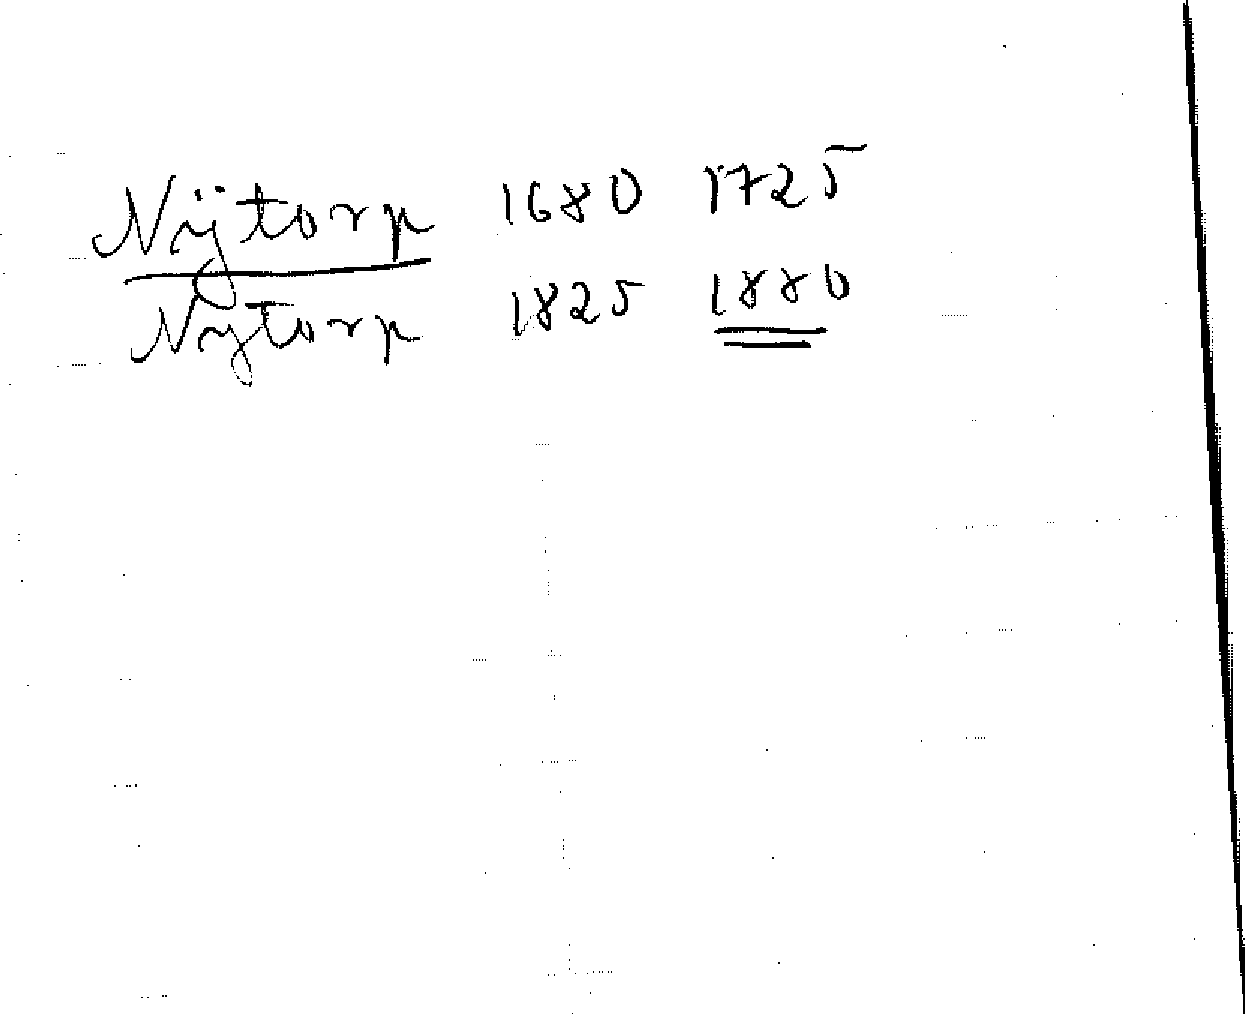 Nÿtorp 1680 1725
Nytorp 1825 1880